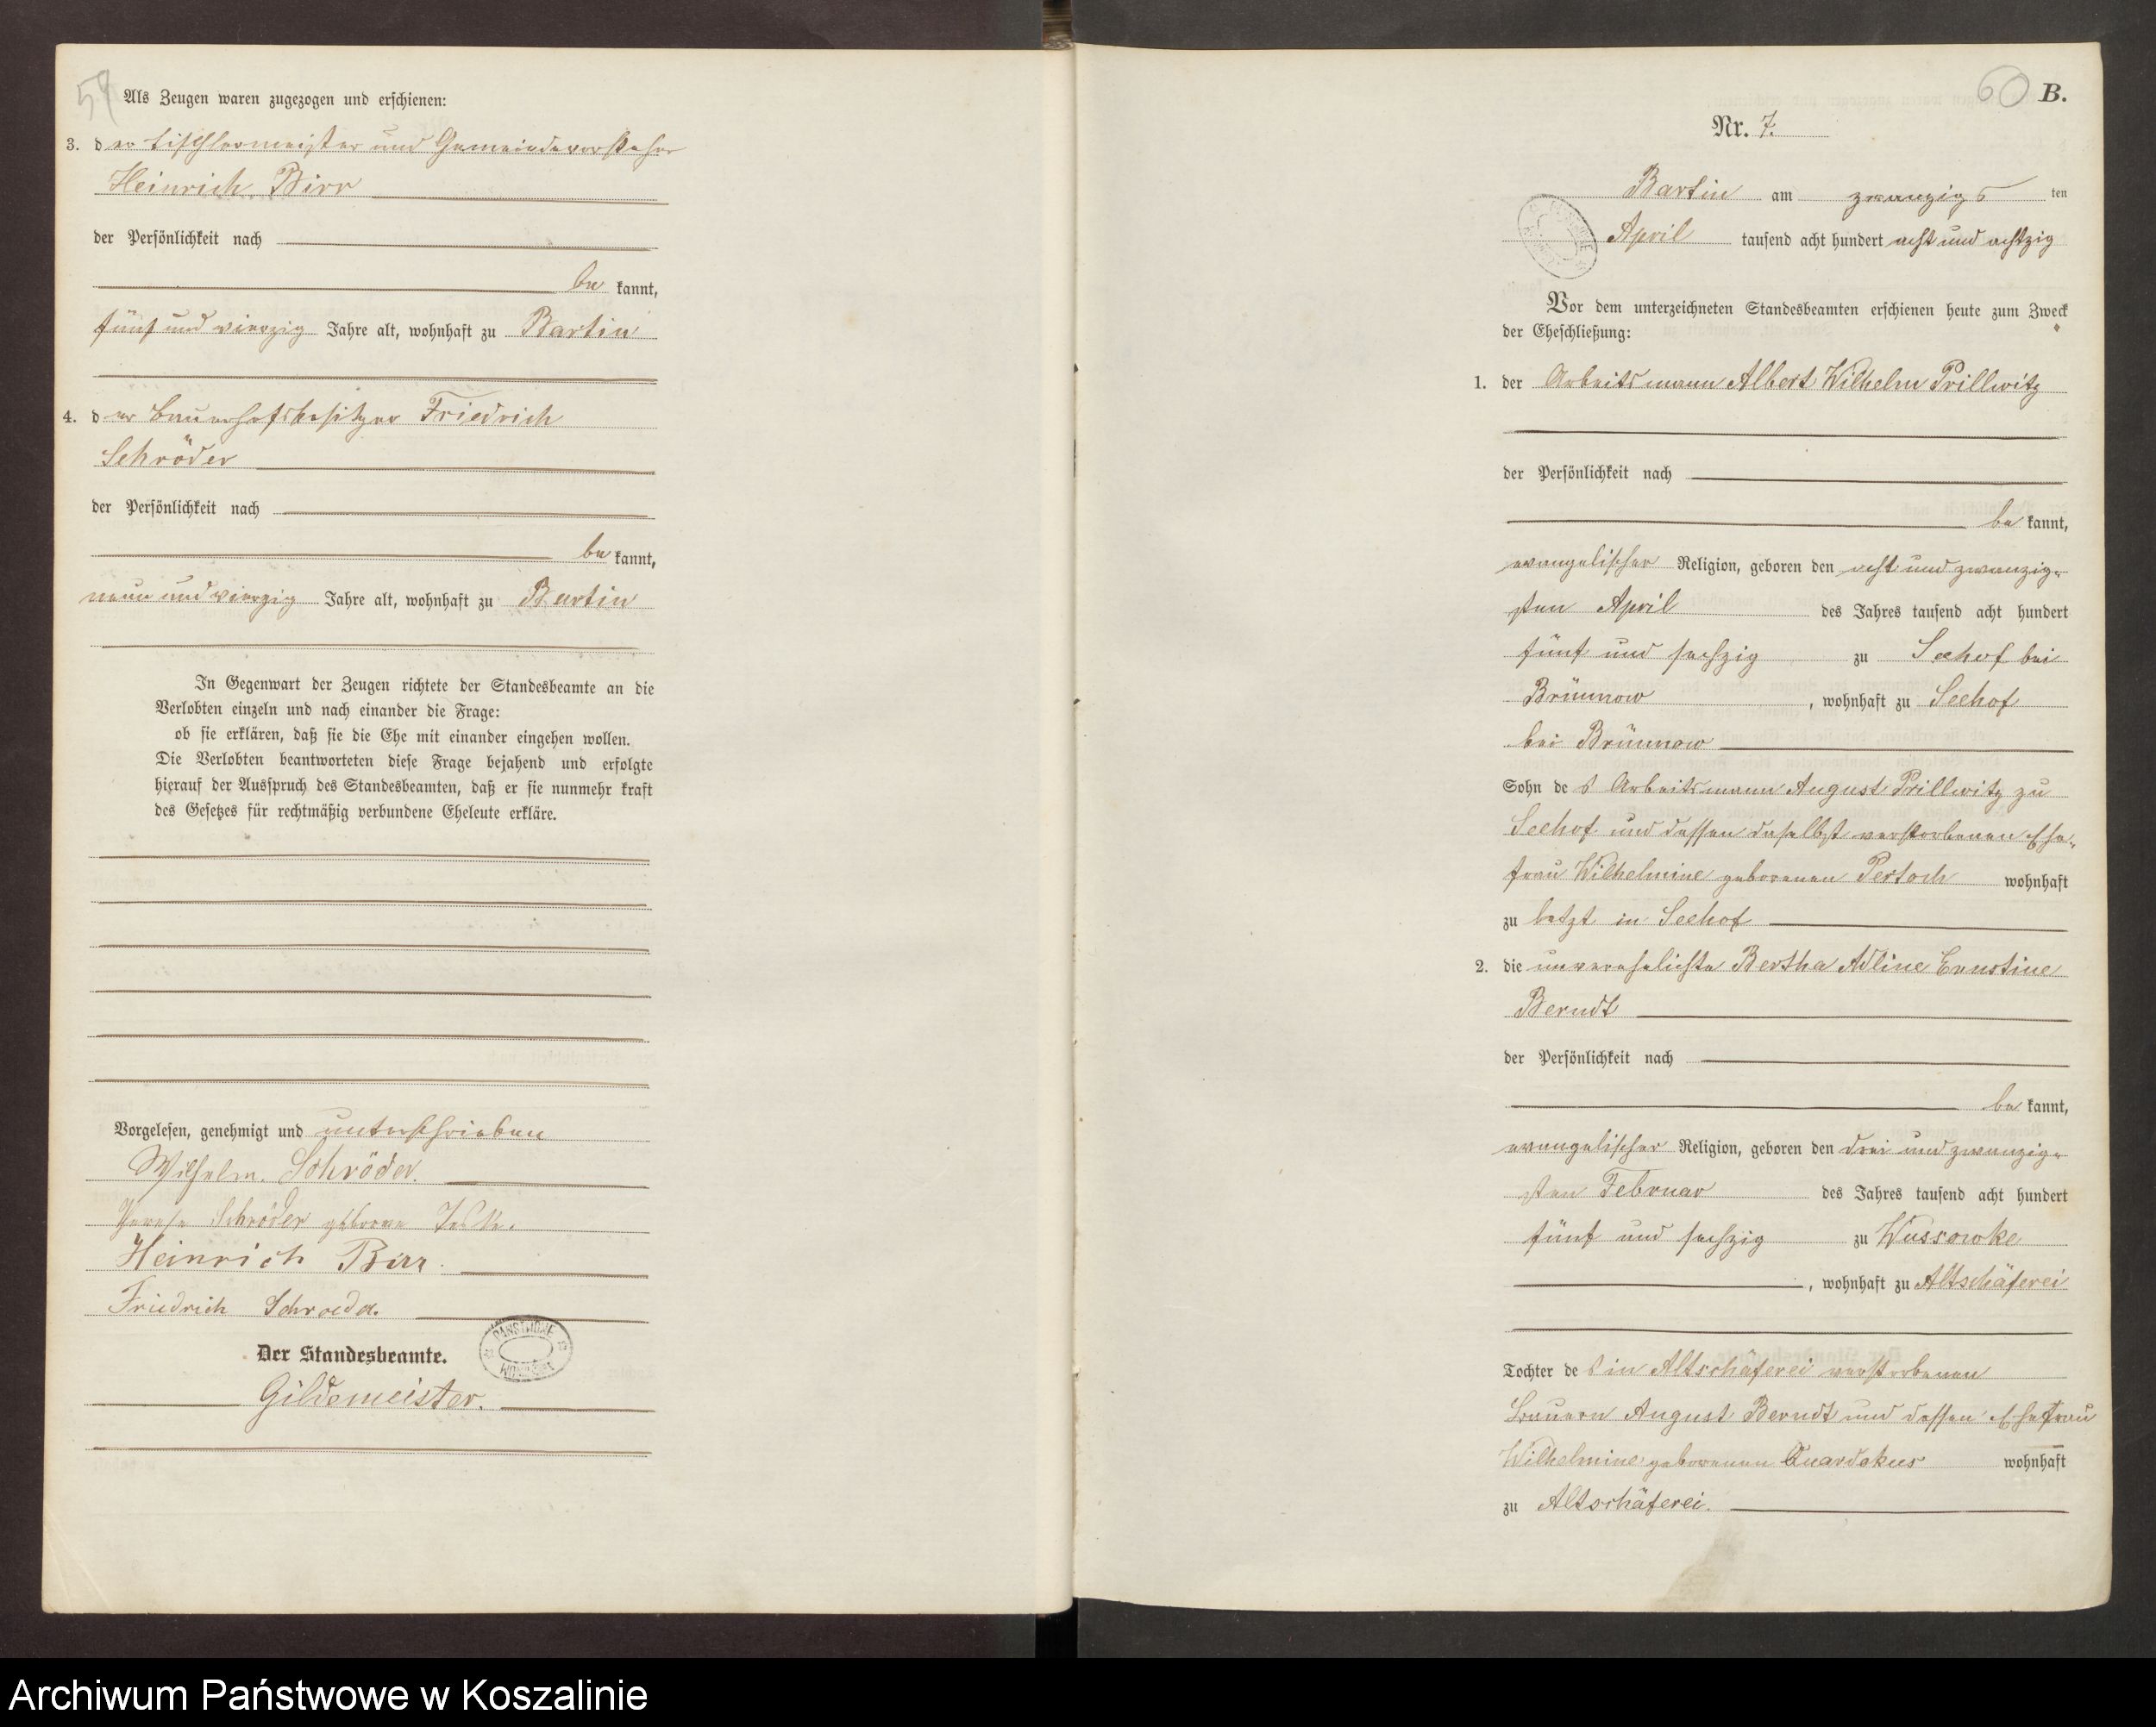 59
Als Zeugen waren zugezogen und erschienen:
3. der Tischlermeister und Gemeindevorsteher
Heinrich Birr
der Persönlichkeit nach
be kannt,
fünf und vierzig Jahre alt, wohnhaft zu Bartin
4. der Bauerhofsbesitzer Friedrich
Schröder
der Persönlichkeit nach
be kannt,
neun und vierzig Jahre alt, wohnhaft zu Bartin
In Gegenwart der Zeugen richtete der Standesbeamte an die
Verlobten einzeln und nach einander die Frage:
ob sie erklären, daß sie die Ehe mit einander eingehen wollen.
Die Verlobten beantworteten diese Frage bejahend und erfolgte
hierauf der Ausspruch des Standesbeamten, daß er sie nunmehr kraft
des Gesetzes für rechtmäßig verbundene Eheleute erkläre.
Vorgelesen, genehmigt und unterschrieben
Wilhelm Schröder.
Schröder geborne
Heinrich Birr.
Friedrich Schroeder.
Der Standesbeamte.
Gildemeister.
60 B.
Nr. 7.
Bartin am zwanzigs ten
April tausend acht hundert acht und achtzig
Vor dem unterzeichneten Standesbeamten erschienen heute zum Zweck
der Eheschließung:
1. der Arbeitsmann Albert Wilhelm Prillwitz
der Persönlichkeit nach
be kannt,
evangelischer Religion, geboren den acht und zwanzig-
sten April des Jahres tausend acht hundert
fünf und sechzig zu Seehof bei
Brünnow, wohnhaft zu Seehof
bei Brünnow
Sohn des Arbeitsmann August Prillwitz zu
Seehof und dessen daselbst verstorbenen Ehe-
frau Wilhelmine geborenen Pertoch wohnhaft
zu letzt in Seehof
2. die unverehelichte Bertha Adline Ernstine
Berndt
der Persönlichkeit nach
be kannt,
evangelischer Religion, geboren den drei und zwanzig-
sten Februar des Jahres tausend acht hundert
fünf und sechzig zu Wussowke
, wohnhaft zu Altschäferei
Tochter des in Altschäferei verstorbenen
Bauern August Berndt und dessen Ehefrau
Wilhelmine geborenen Quardokus wohnhaft
zu Altschäferei.
Archiwum Państwowe w Koszalinie